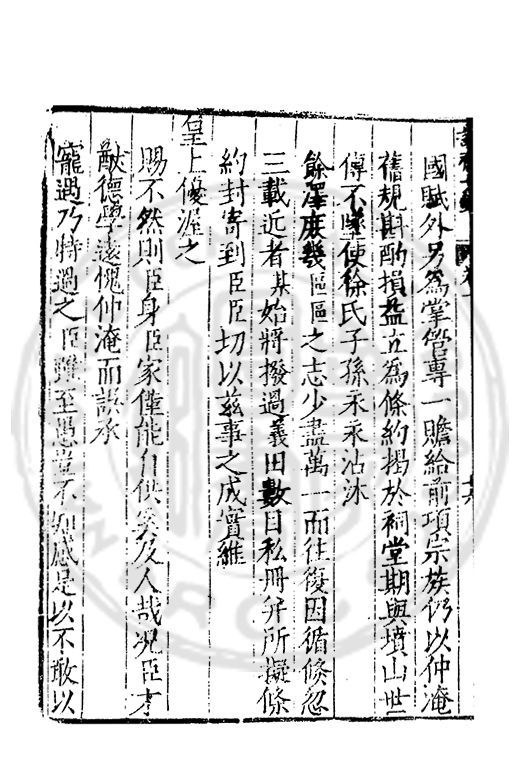 國賦外另為掌管專一贍給前項宗族仍以仲淹
舊規斟酌損益立為條約揭於祠堂期與墳山世
傳不墜使徐氏子孫永永沾沐
餘澤庶幾區區之志少盡萬一而往復因循倐忽
三載近者某始將撥過義田數目私冊并所擬條
約封寄到臣臣切以茲事之成實維
皇上優渥之
賜不然則臣身臣家僅能自供奚及人哉況臣才
猷德學遠愧仲淹而誤承
寵遇乃特過之臣雖至愚豈不知感是以不敢以